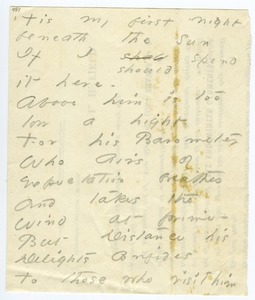 it is my first night
beneath the Sun
If I shou
should spend
it here -
Above him is too
low a hight
For his Barometer
Who Airs of
expectation breathes
And takes the
Wind at prime -
But Distance his
Delights confides
To those who visit him